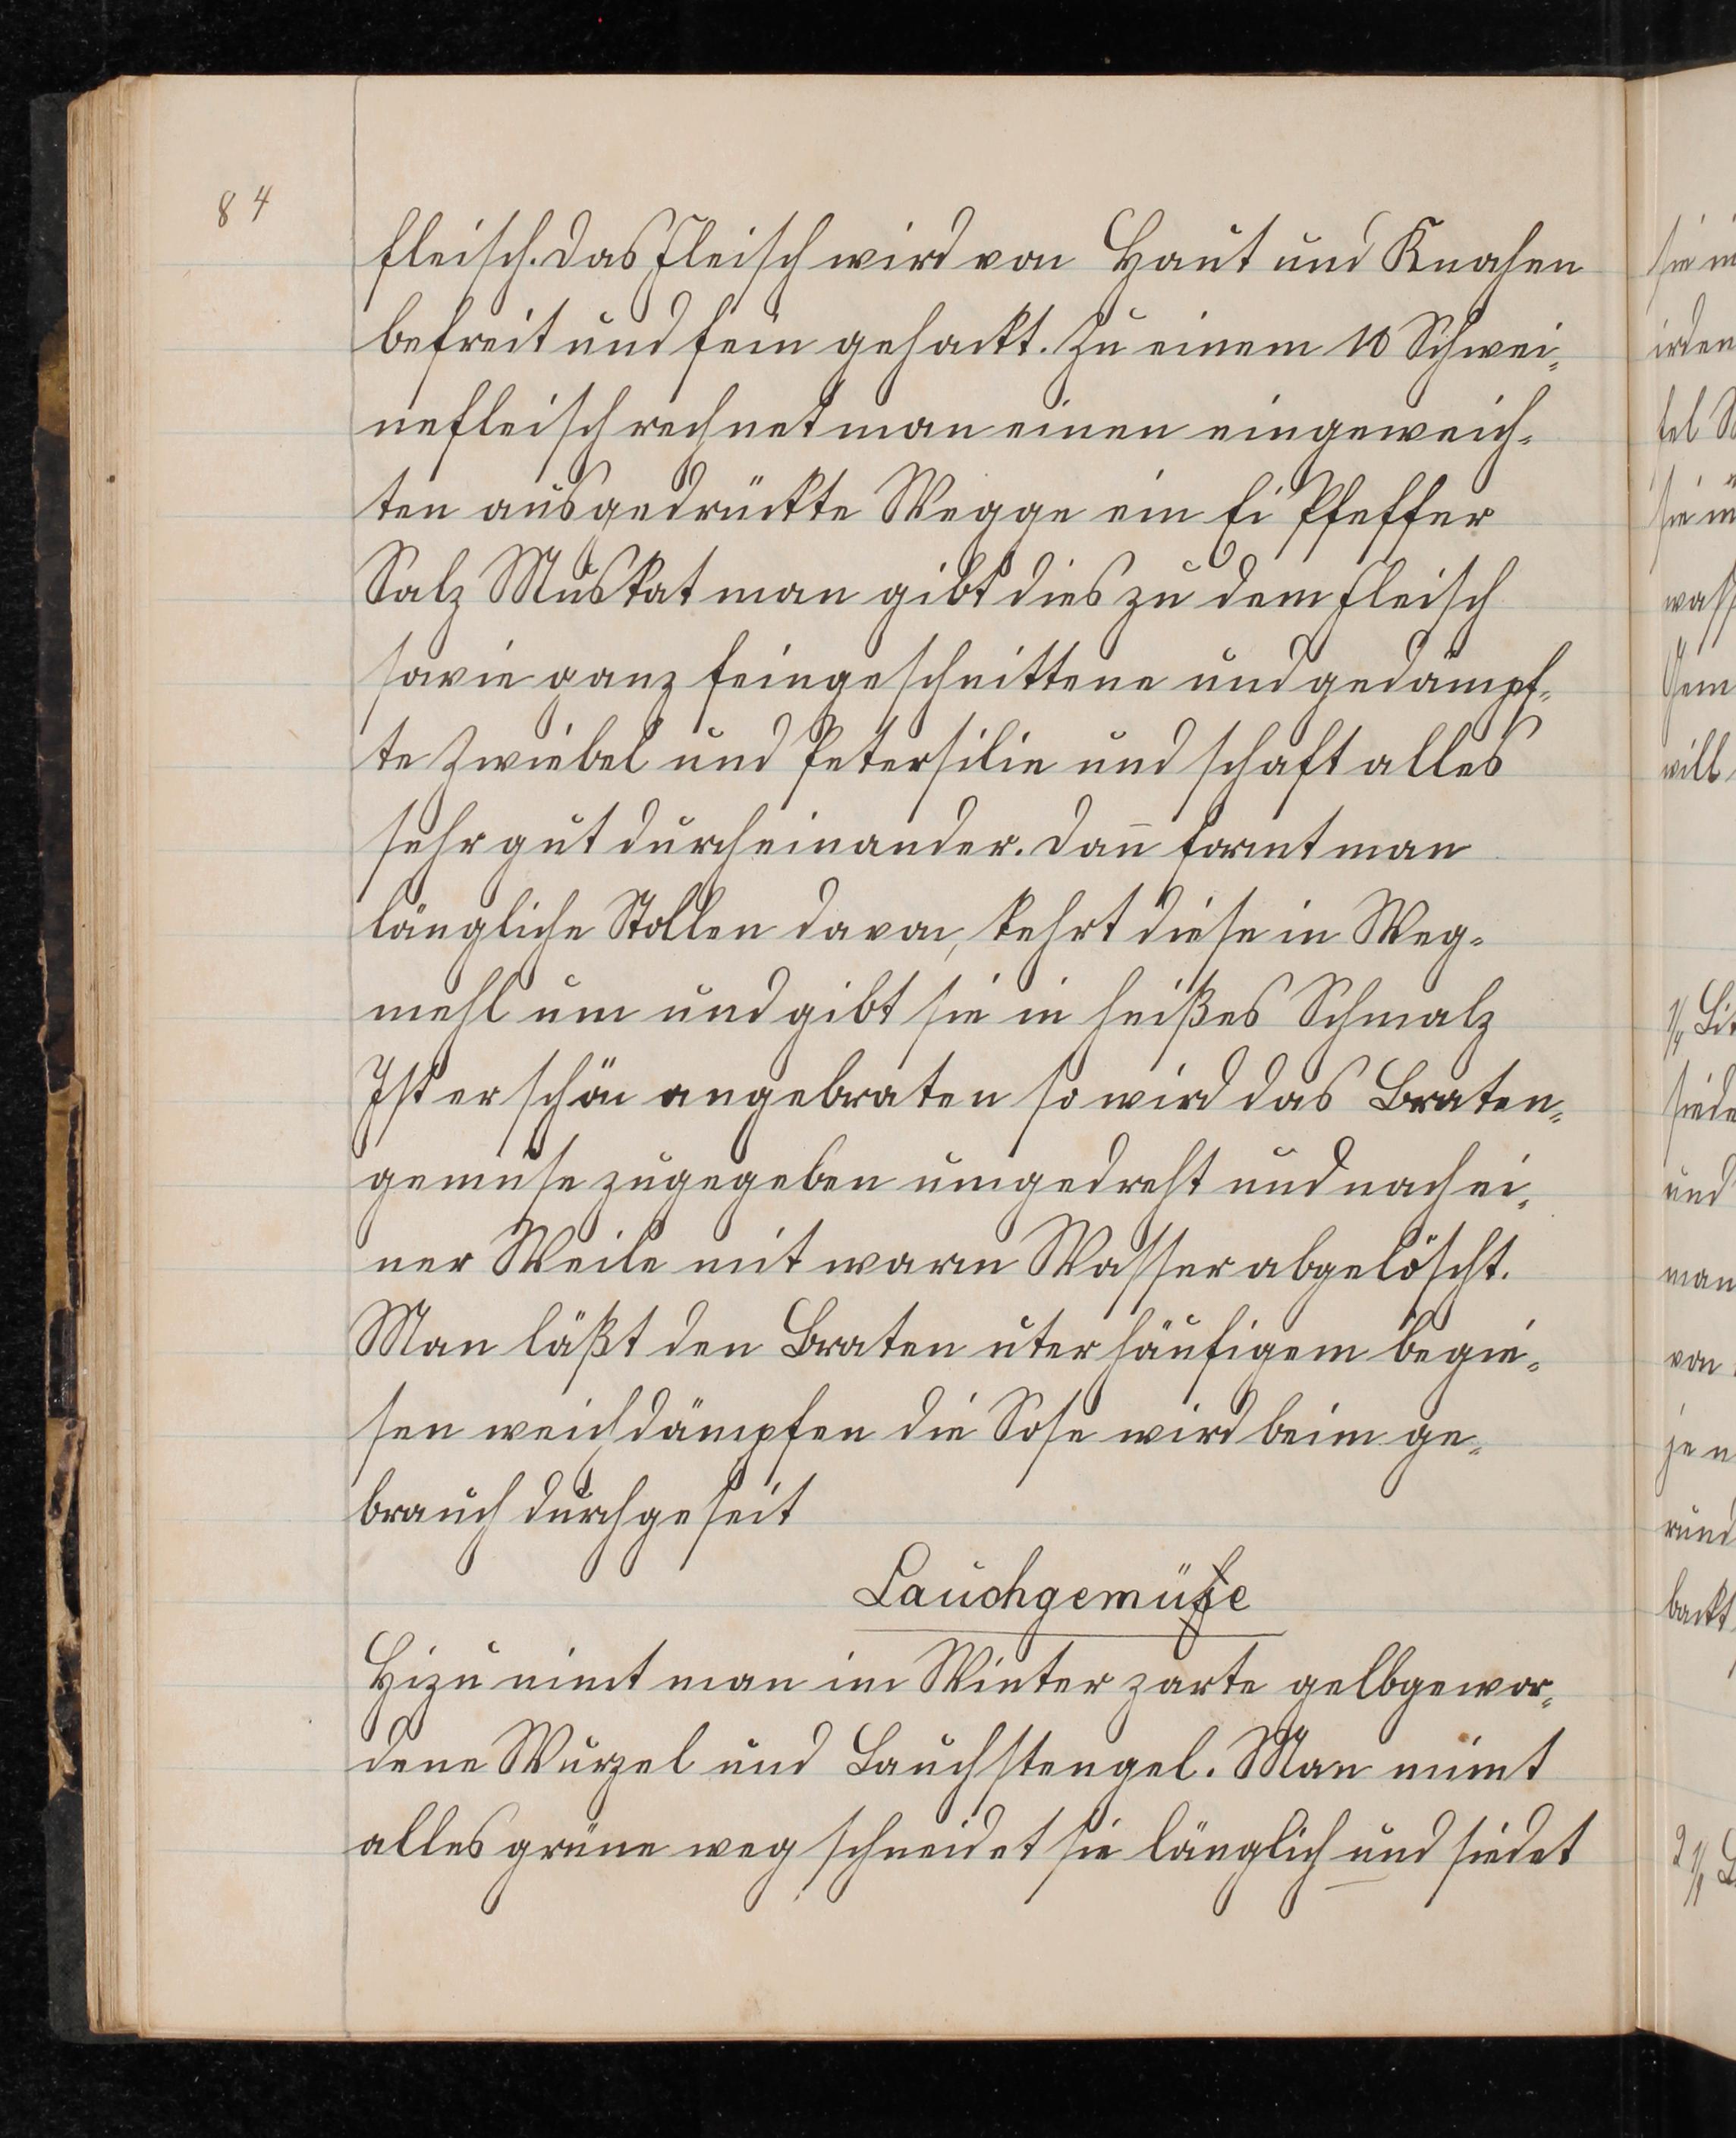 84
fleisch. Das Fleisch wird von Haut und Knahen
befreit und fein gehackt. Zu einem 10 Schwei-
nefleisch rechnet man einen eingeweich-
ten ausgedrückte Wegge ein Ei Pfeffer
Salz Muskat man gibt dies zu dem Fleisch
sowie ganz feingeschnittene und gedämpf-
te Zwiebel und Petersilie und schaft alles
sehr gut durcheinander. Dan̄ formt man
längliche Stollen davon, kehrt diese in Weg-
mehl um und gibt sie in heißes Schmalz
Ist er schön angebraten so wird das Braten-
gemüse zugegeben umgedreht und nach ei-
ner Weile mit warm Wasser abgelöscht.
Man läßt den Braten uter häufigem begie-
sen weich dämpfen die Sose wird beim ge-
brauch durchgeseit
Lauchgemüse
Hizu nimt man im Winter zarte gelbgewor-
dene Wurzel und Lauchstengel. Man nimt
alles grüne weg schneidet sie länglich und siedet